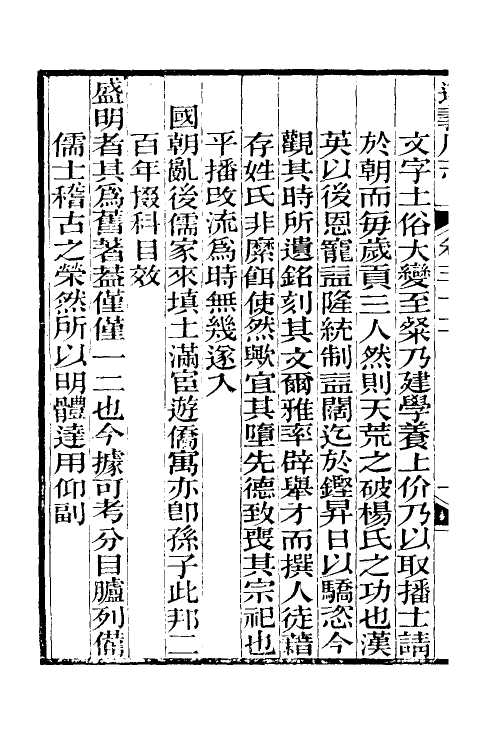 文字土俗大變至粲乃建學養士价乃以取播士請
於朝而每歲貢三人然則天荒之破楊氏之功也漢
英以後恩寵益隆統制益闊迄於鏗昇日以驕恣今
觀其時所遺銘刻其文爾雅率辟舉才而撰人徒藉
存姓氏非縻餌使然歟宜其墮先德致喪其宗祀也
平播改流為時無幾遂入
國朝亂後儒家來填土滿宦遊僑寓亦卽孫子此邦二
百年惙科目效
盛明者其為舊著葢僅僅一二也今據可考分目臚列僃
儒士稽古之榮然所以明體達用仰副